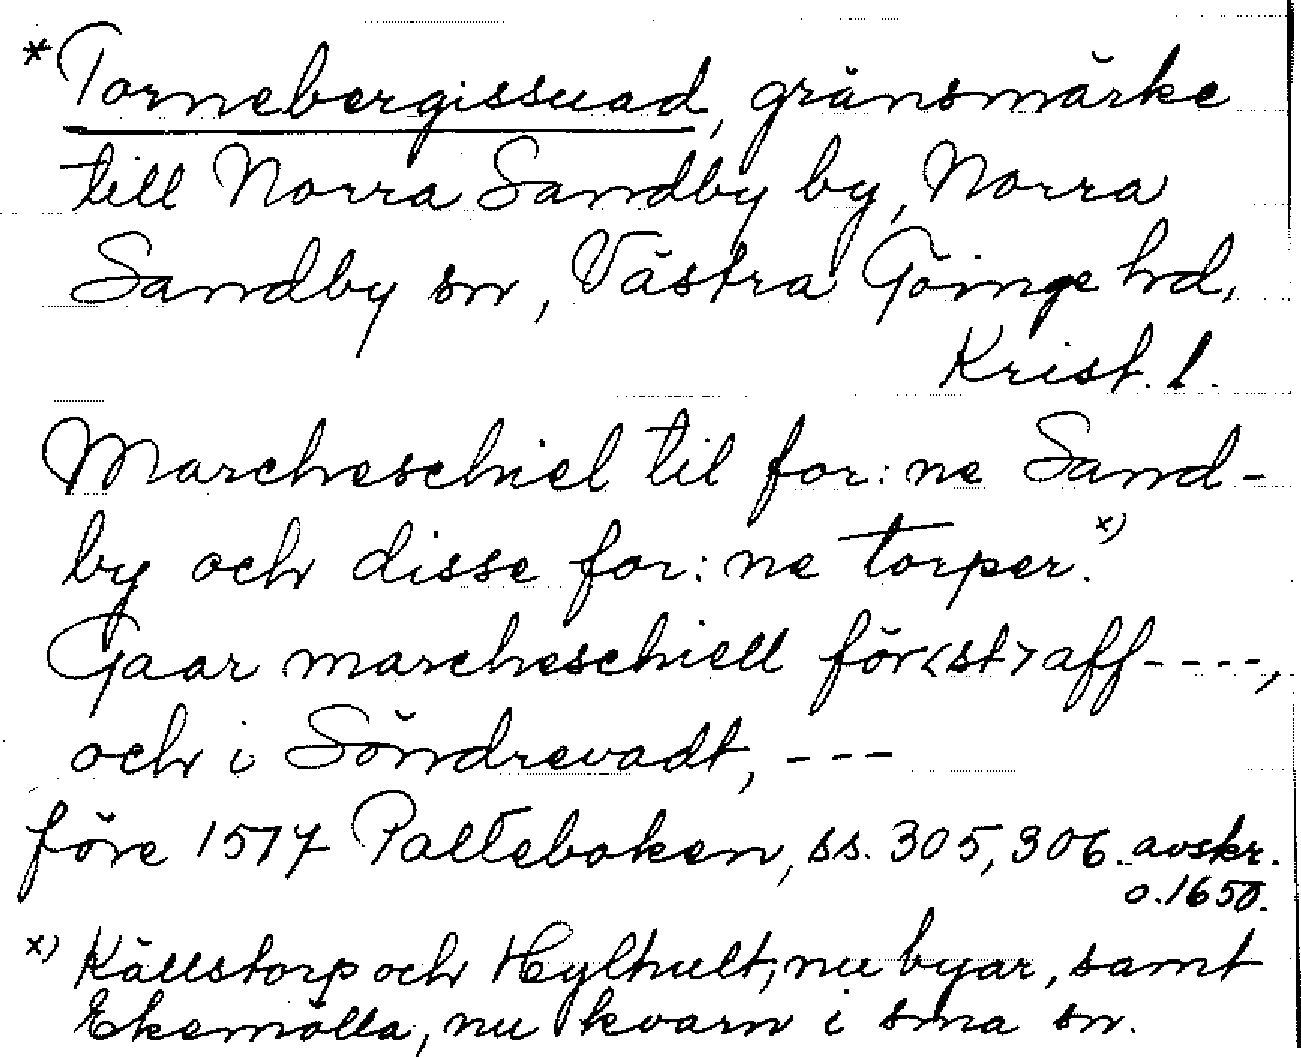 *Tornebergissuad, gränsmärke
till Norra Sandby by, Norra
Sandby sn, Västra Göinge hd,
Krist. l.
Marcheschiel til for: ne Sand-
by och disse for: ne torper. x)
Gaar marcheschiell för<st> aff ----,
och i Söndrevadt, ---
före 1517 Palteboken, ss. 305, 306. avskr.
o. 1650.
x) Källstorp och Hylhult, nu byar, samt
Ekemölla, nu kvarn i sma sn.